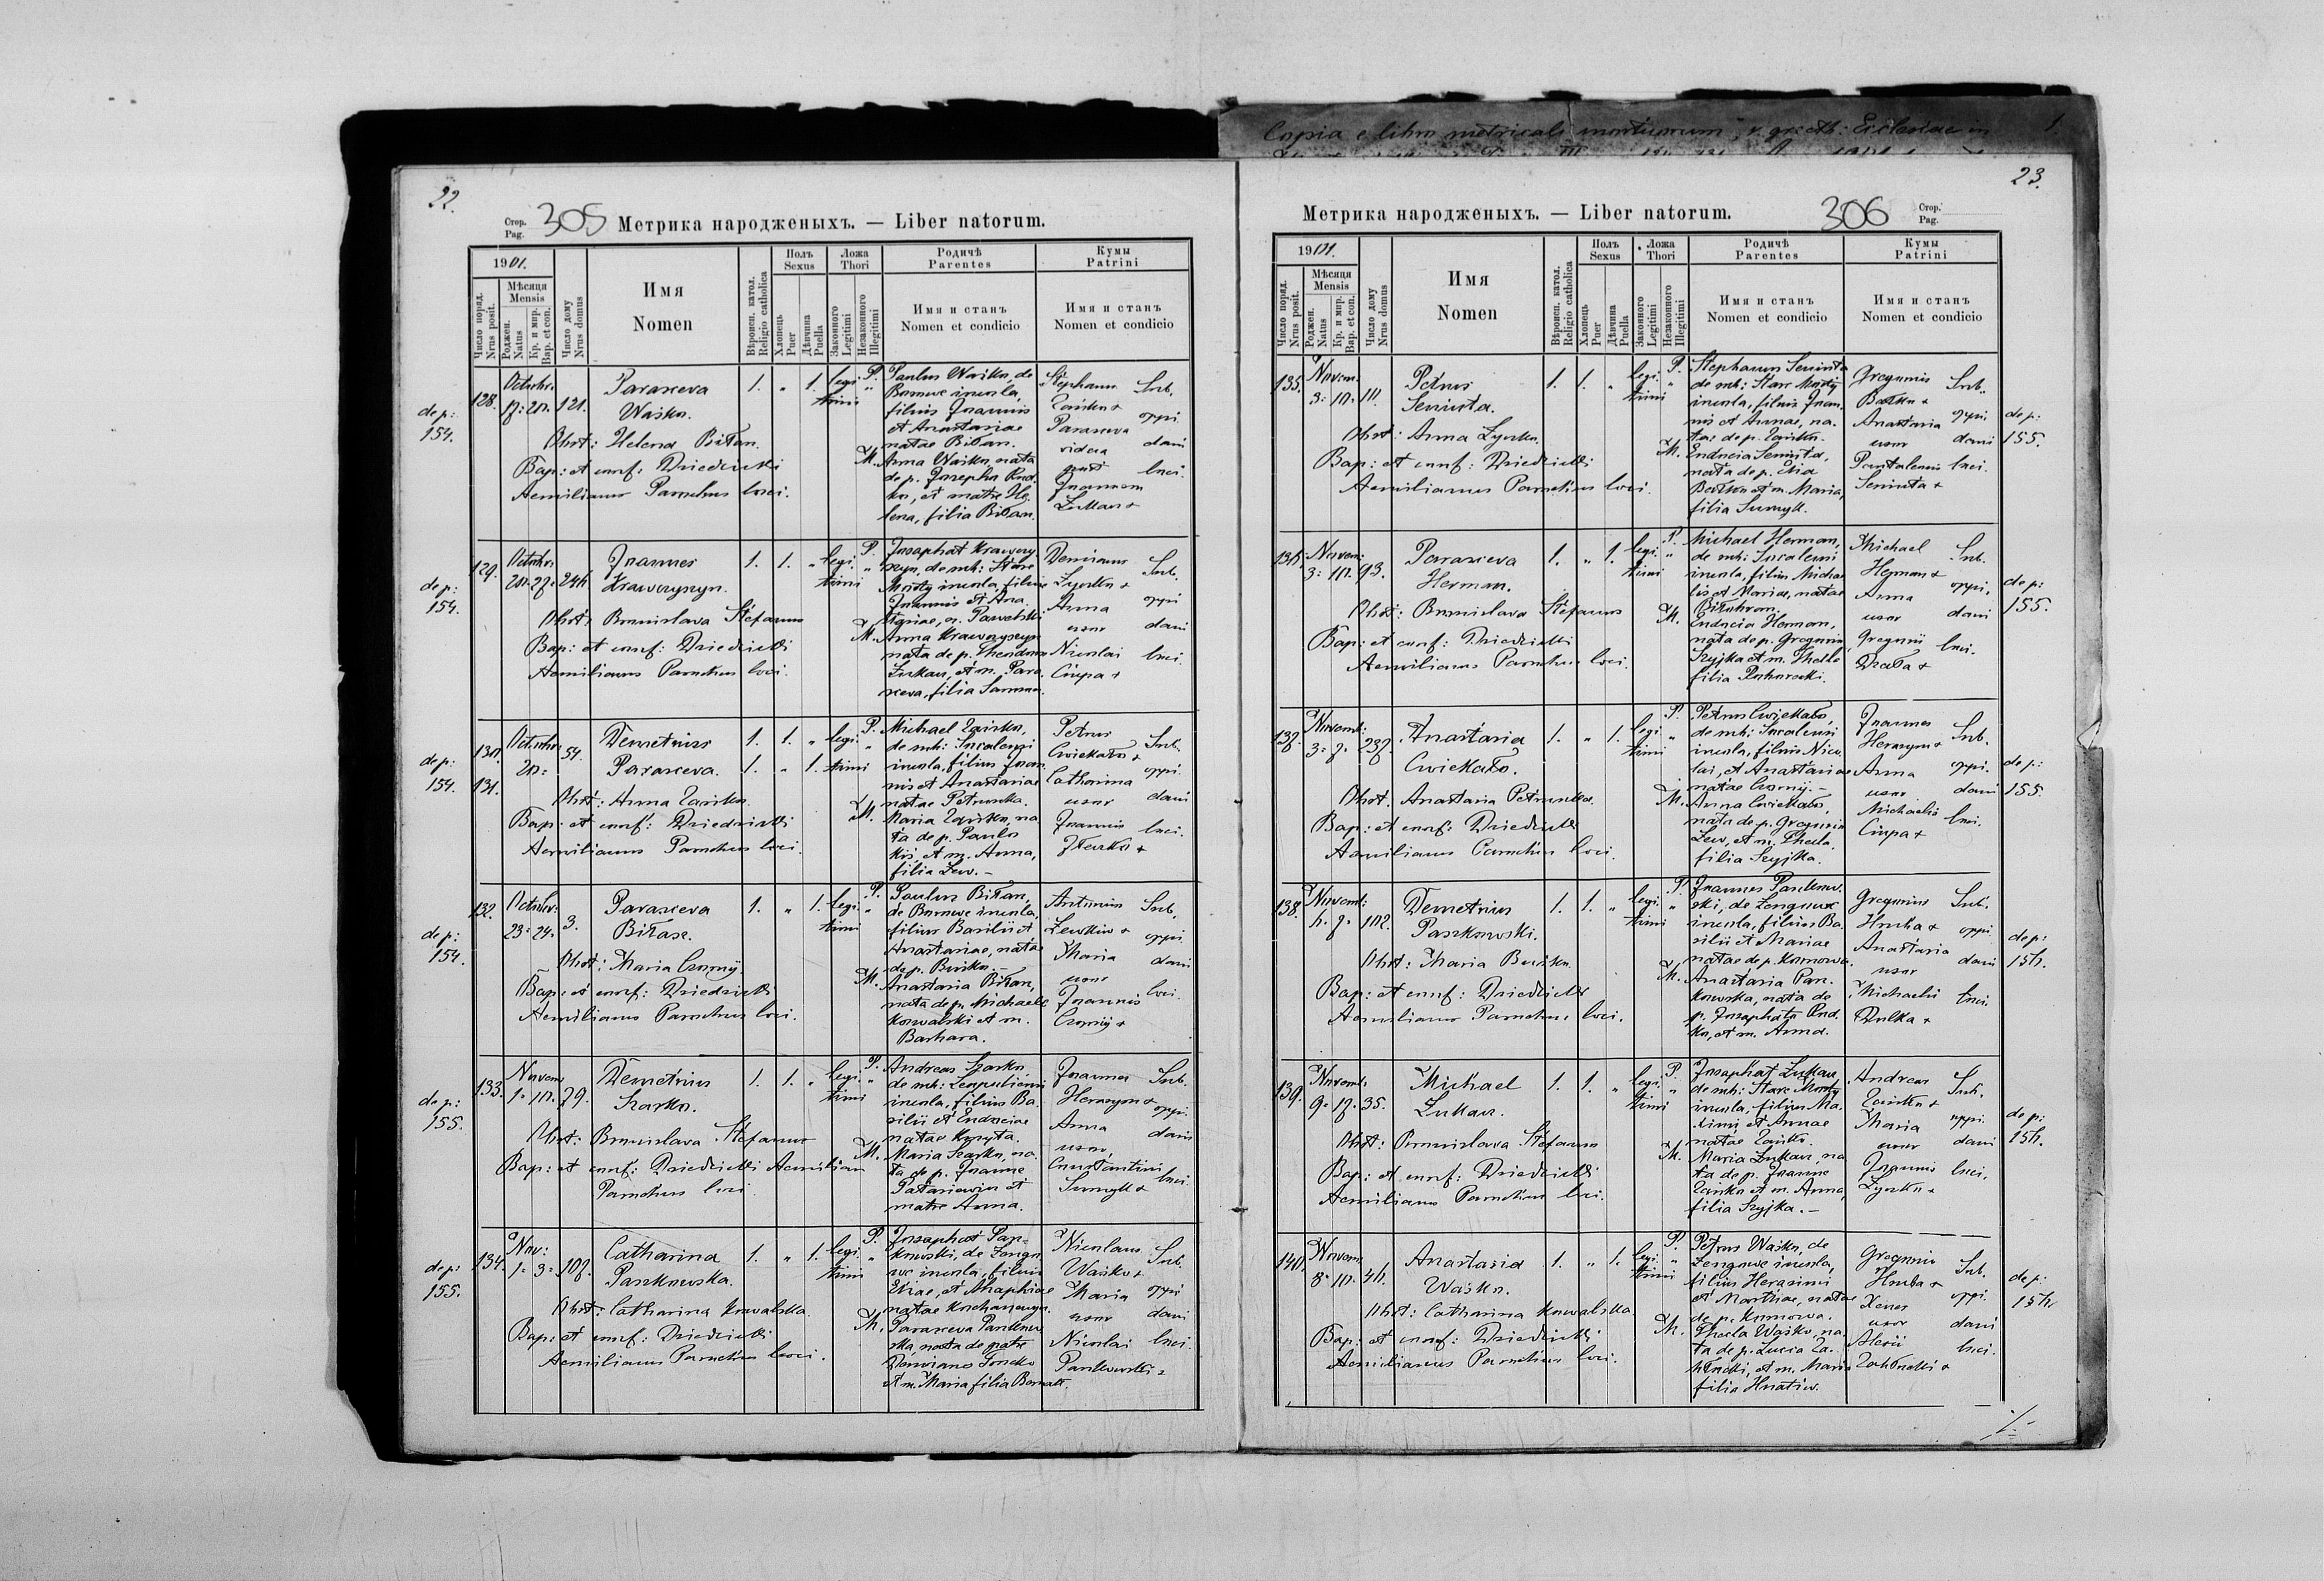 Copia e libro metricali mortuorum, r. gr. cath: Ecclesiae in
1.
22.
Стор.
Pag.
305
Метрика народженыхъ. — Liber natorum.
1901.
Число поряд.
Nrus posit.
Мѣсяця
Mensis
Роджен.
Natus
Кр. и мир.
Bap. et con.
Число дому
Nrus domus
Имя
Nomen
Вѣроисп. катол.
Religio catholica
Полъ
Sexus
Хлопець
Puer
Дѣвчина
Puella
Ложа
Thori
Законного
Legitimi
Незаконного
Illegitimi
Родичѣ
Parentes
Имя и станъ
Nomen et condicio
Кумы
Patrini
Имя и станъ
Nomen et condicio
de p:
154.
128.
Octobr.
121.
Paraxeva
Waśko.
1. „ 1. legi
timi
Obst: Helena Biłan.
Bap: et conf: Dziedzicki
Aemilianus Parochus loci.
P. Paulus Waśko, de
incola,
filius Joannis
et Anastasiae
natae Biłan.
M. Anna Waśko, nata
de p. Josepho Rud
ko, et matre He
lena, filia Biłan.
Stephanus
Zańko +
Paraxeva
vidua
post
Joannem
Łukan +
Sub.
oppi
dani
loci.
de p:
154.
129.
Octobr.
20. 27.
246
Joannes
Krawczyszyn.
1. 1. „ legi.
timi
Obst: Bronislava Stefanus
Bap: et conf: Dziedzicki
Aemilianus Parochus loci.
P. Josaphat Krawczy
szyn, de sub: Stare
Mosty incola, filius
Joannis et Ana
stasiae, n. Pawelski
M. Anna Krawczyszyn
nata de p. Theodoro
Łukan, et m. Para
xeva, filia
Damianus
Łysko +
Anna
uxor
Nicolai
Ciupa +
Sub.
oppi
dani
loci
de p:
154.
130.
131.
Octobr.
20.
54.
Demetrius
Paraxeva.
1. 1. „ legi.
1. „ 1. timi
Obst: Anna Zańko.
Bap: et conf: Dziedzicki
Aemilianus Parochus loci.
P. Michael Zańko,
de sub: Socalensi
incola, filius Joan
nis et Anastasiae
natae Petruska.
M. Maria Zańko, na
ta de p. Paulo
Kis, et m. Anna,
filia Lew. –
Petrus
Cwiekało +
Catharina
uxor
Joannis
Sub.
oppi.
dani
loci.
de p:
154.
132.
October
23. 24.
3.
Paraxeva
Biłan.
1. „ 1. legi.
timi
Obst: Maria Czornij.
Bap: et conf: Dziedzicki
Aemilianus Parochus loci.
P. Paulus Biłan,
de incola,
filius Basilii et
Anastasiae, natae
de p. Buśko. –
M. Anastasia Biłan,
nata de p. Michaele
Kowalski et m.
Barbara.
Antonius
Lewkiw +
Maria
uxor
Joannis
Czornij +
Sub.
oppi.
dani
loci.
de p:
155.
133.
Novem
1. 10.
79.
Demetrius
Szarko.
1. 1. „ legi.
timi
Obst: Bronislava Stefanus
Bap: et conf: Dziedzicki Aemilian
Parochus loci
P. Andreas Szarko,
de sub: Leopoliensi
incola, filius Ba
silii et Eudociae
natae
M. Maria Szarko, na
ta de p. Joanne
Patasiewicz et
matre Anna.
Joannes
Hersym +
Anna
uxor,
Constantini
Sub.
oppi.
dani
loci.
de p:
155.
134.
Nov:
1. 3.
107.
Catharina
Paszkowska.
1. „ 1. legi.
timi
Obst: Catharina Kowalska.
Bap: et conf: Dziedzicki
Aemilianus Parochus loci.
P. Josaphat Pasz
kowski, de Zengo
we incola, filius
Eliae, et Anaphiae
natae
M. Paraxeva Paszkow
ska, nata de patre
Damiano
et m. Maria filia
Nicolaus
Waśko +
Maria
uxor
Nicolai
Paszkowski +
Sub.
oppi
dani
loci.
23.
Метрика народженыхъ. — Liber natorum.
306
Стор.
Pag.
1901.
Число поряд.
Nrus posit.
Мѣсяця
Mensis
Роджен.
Natus
Кр. и мир.
Bap. et con.
Число дому
Nrus domus
Имя
Nomen
Вѣроисп. катол.
Religio catholica
Полъ
Sexus
Хлопець
Puer
Дѣвчина
Puella
Ложа
Thori
Законного
Legitimi
Незаконного
Illegitimi
Родичѣ
Parentes
Имя и станъ
Nomen et condicio
Кумы
Patrini
Имя и станъ
Nomen et condicio
135.
Novem.
3. 10.
Petrus
Seniuta.
1. 1. „ legi.
timi
Obst: Anna Łysko.
Bap: et conf: Dziedzicki
Aemilianus Parochus loci.
P. Stephanus Seniuta
de sub: Stare Mosty
incola, filius Joan
nis et Annae, na
tae de p. Zańko.
M. Eudocia Seniuta,
nata de p. Elia
et m. Maria,
filia Sumyk.
Gregorius
Anastasia
uxor
Pantalemis
Seniuta +
Sub.
oppi.
dani
loci.
de p:
155.
136.
Novem:
3. 10.
93.
Paraxeva
Herman.
1. „ 1. legi.
timi
Obst: Bronislava Stefanus
Bap: et conf: Dziedzicki
Aemilianus Parochus loci.
P. Michael Herman,
de sub: Socalensi
incola, filius Michae
lis et Mariae, natae
M. Eudocia Herman,
nata de p. Gregorio
Szyjka et m. Thecla
filia
Michael
Herman +
Anna
uxor
Gregorii
Sub.
oppi.
dani
loci.
de p:
155.
137.
Novemb:
3. 7.
237.
Anastasia
Cwiekało.
1. „ 1. legi.
timi
Obst. Anastasia Petruska.
Bap: et conf: Dziedzicki
Aemilianus Parochus loci.
P. Petrus Cwiekało,
de sub: Socalensi
incola, filius Nico
lai, et Anastasiae
natae Czornij. –
M. Anna Cwiekało,
nata de p. Gregorio
Lew, et m. Thecla
filia Szyjka.
Joannes
Hersym +
Anna
uxor
Michaelis
Ciupa +
Sub.
oppi.
dani
loci.
de p:
155.
138.
Novemb:
6. 7.
102.
Demetrius
Paszkowski.
1. 1. „ legi.
timi
Obst: Maria Buśko.
Bap: et conf: Dziedzicki
Aemilianus Parochus loci.
P. Joannes Paszkow
ski, de Zengowe
incola, filius Ba
silii et Mariae
natae de p. Komowa.
M. Anastasia Pasz
kowska, nata de
p. Josaphato Rud
ko, et m. Anna.
Gregorius
Hruba +
Anastasia
uxor
Michaelis
Dulka +
Sub.
oppi.
dani
loci.
de p:
156.
139.
Novemb.
9. 17.
35.
Michael
Łukan.
1. 1. „ legi.
timi
Obst: Bronislava Stefanus
Bap: et conf: Dziedzicki
Aemilianus Parochus loci.
P. Josaphat Łukan,
de sub: Stare Mosty
incola, filius Ma
ximi et Annae
natae Zańko.
M. Maria Łukan, na
ta de p. Joanne
Zańko et m. Anna,
filia Szyjka. –
Andreas
Zańko +
Maria
uxor
Joannis
Łysko +
Sub.
oppi.
dani
loci.
de p:
156.
140.
Novem
8. 10.
46.
Anastasia
Waśko.
1. „ 1. legi.
timi
Obst: Catharina Kowalska
Bap: et conf: Dziedzicki
Aemilianus Parochus loci.
P. Petrus Waśko, de
Zengowe incola,
filius Herasimi
et Marthae, natae
de p. Komowa.
M. Thecla Waśko, na
ta de p. Luca Za
et m. Maria
filia Hnatiw.
Gregorius
Hruba +
Xenia
uxor
Alexii
Sub.
oppi.
dani
loci.
de p:
156.